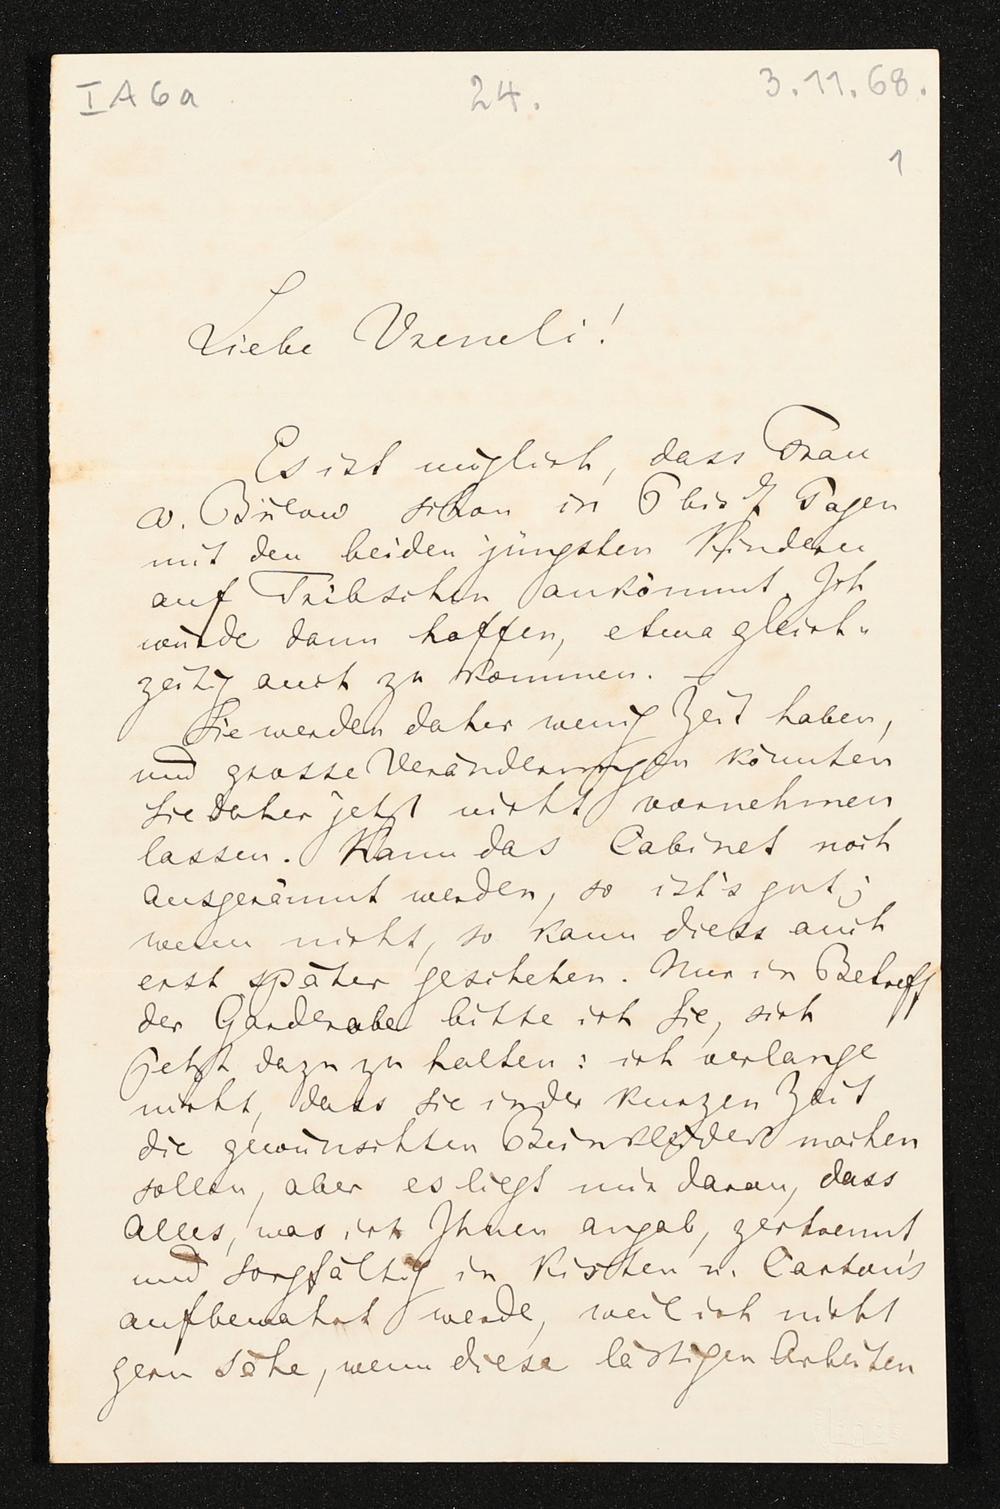 I A 6 a 24. 3.11.68.
1
Liebe Vreneli!
Es ist möglich, dass Frau
v. Bülow schon in 6 bis 7 Tagen
mit den beiden jüngsten Kindern
auf Tribschen ankömmt. Ich
würde dann hoffen, etwa gleich-
zeitig auch zu kommen. —
Sie werden daher wenig Zeit haben,
und grosse Veränderungen könnten
Sie daher jetzt nicht vornehmen
lassen. Kann das Cabinet noch
ausgeräumt werden, so ist's gut;
wenn nicht, so kann diess auch
erst später geschehen. Nur in Betreff
der Garderobe bitte ich Sie, sich
jetzt dazu zu halten: ich verlange
nicht, dass Sie in der kurzen Zeit
die gewünschten Beinkleider machen
sollen, aber es liegt mir daran, dass
Alles, was ich Ihnen angab, zertrennt
und sorgfältig in Kisten u. Carton's
aufbewahrt werde, weil ich nicht
gern sähe, wenn diese lästigen Arbeiten